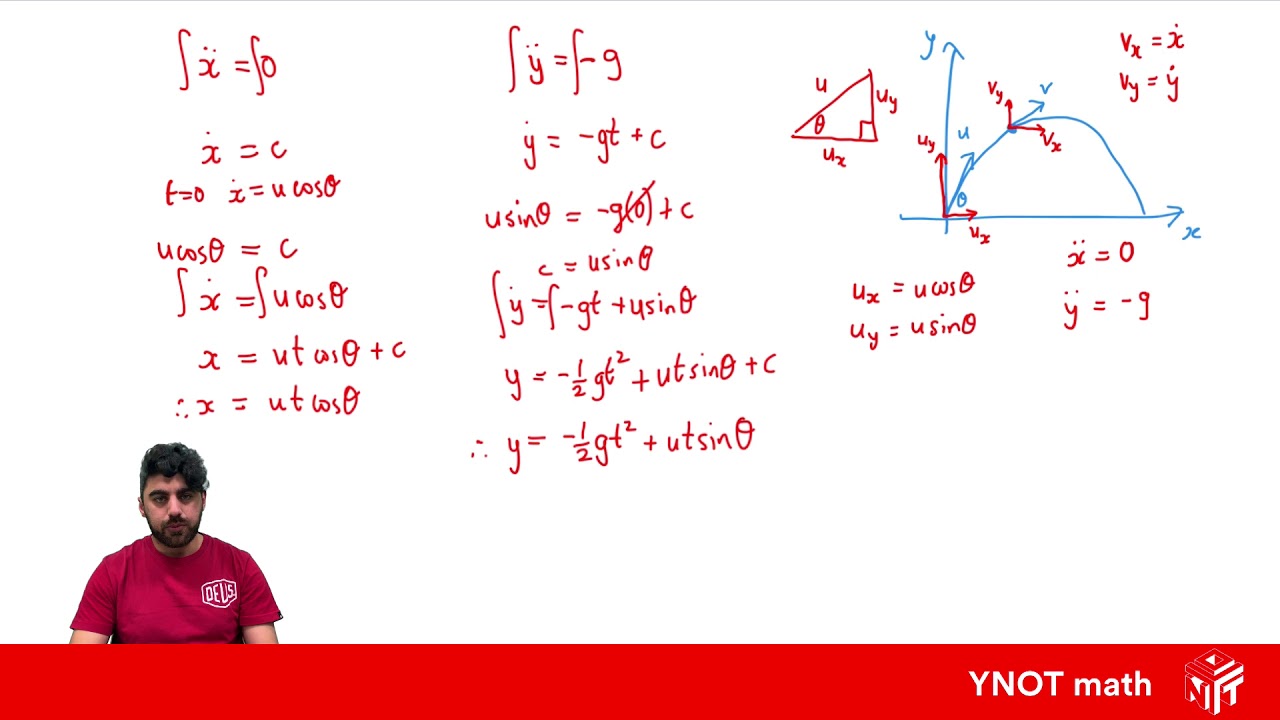 ∫ẍ = ∫0
ẋ = c
t=0 ẋ = u cosθ
u cosθ = c
∫ẋ = ∫u cosθ
x = ut cosθ + c
∴ x = ut cosθ
∫ÿ = ∫-g
ẏ = -gt + c
u sinθ = -g(0) + c
c = u sinθ
∫ẏ = ∫-gt + u sinθ
y = -½gt² + ut sinθ + c
∴ y = -½gt² + ut sinθ
u
u_y
θ
u_x
y
v_y
v
v_x
u_y
u
θ
u_x
x
v_x = ẋ
v_y = ẏ
u_x = u cosθ
u_y = u sinθ
ẍ = 0
ÿ = -g
DEUS
YNOT math
YNOT